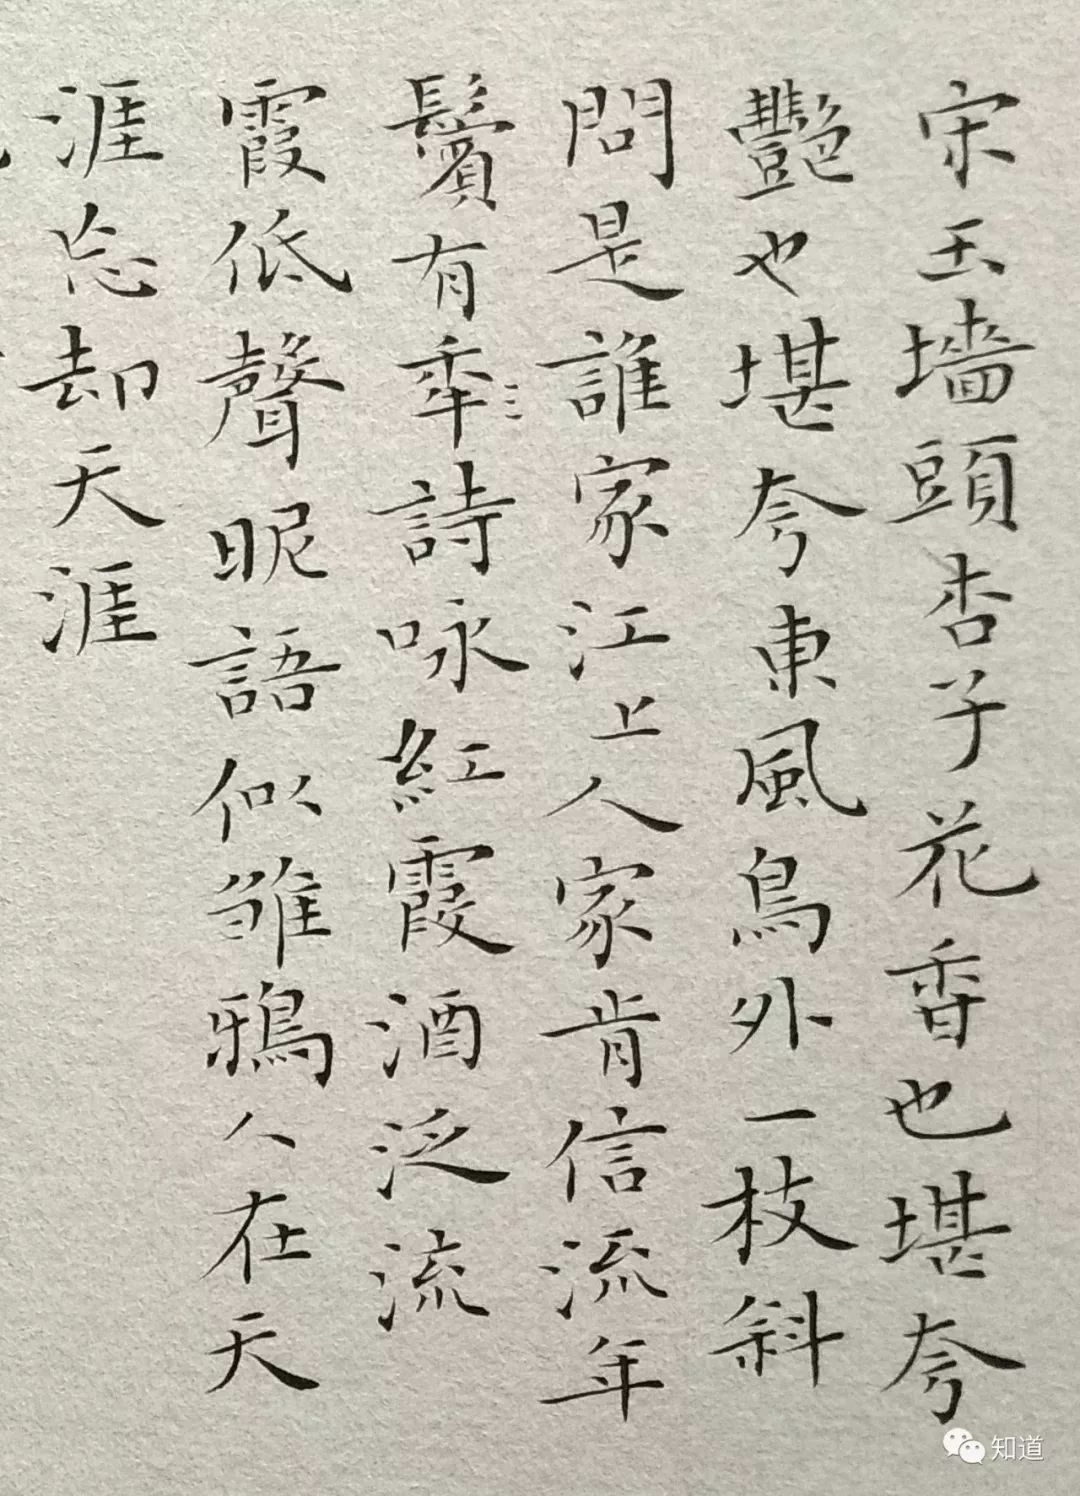 宋玉墙頭杏子花香也堪夸
艷也堪夸東風鳥外一枝斜
問是誰家江上人家肯信流年
鬢有華詩咏紅霞酒泛流
霞低聲昵語似雏鴉人在天
涯忘却天涯
知道